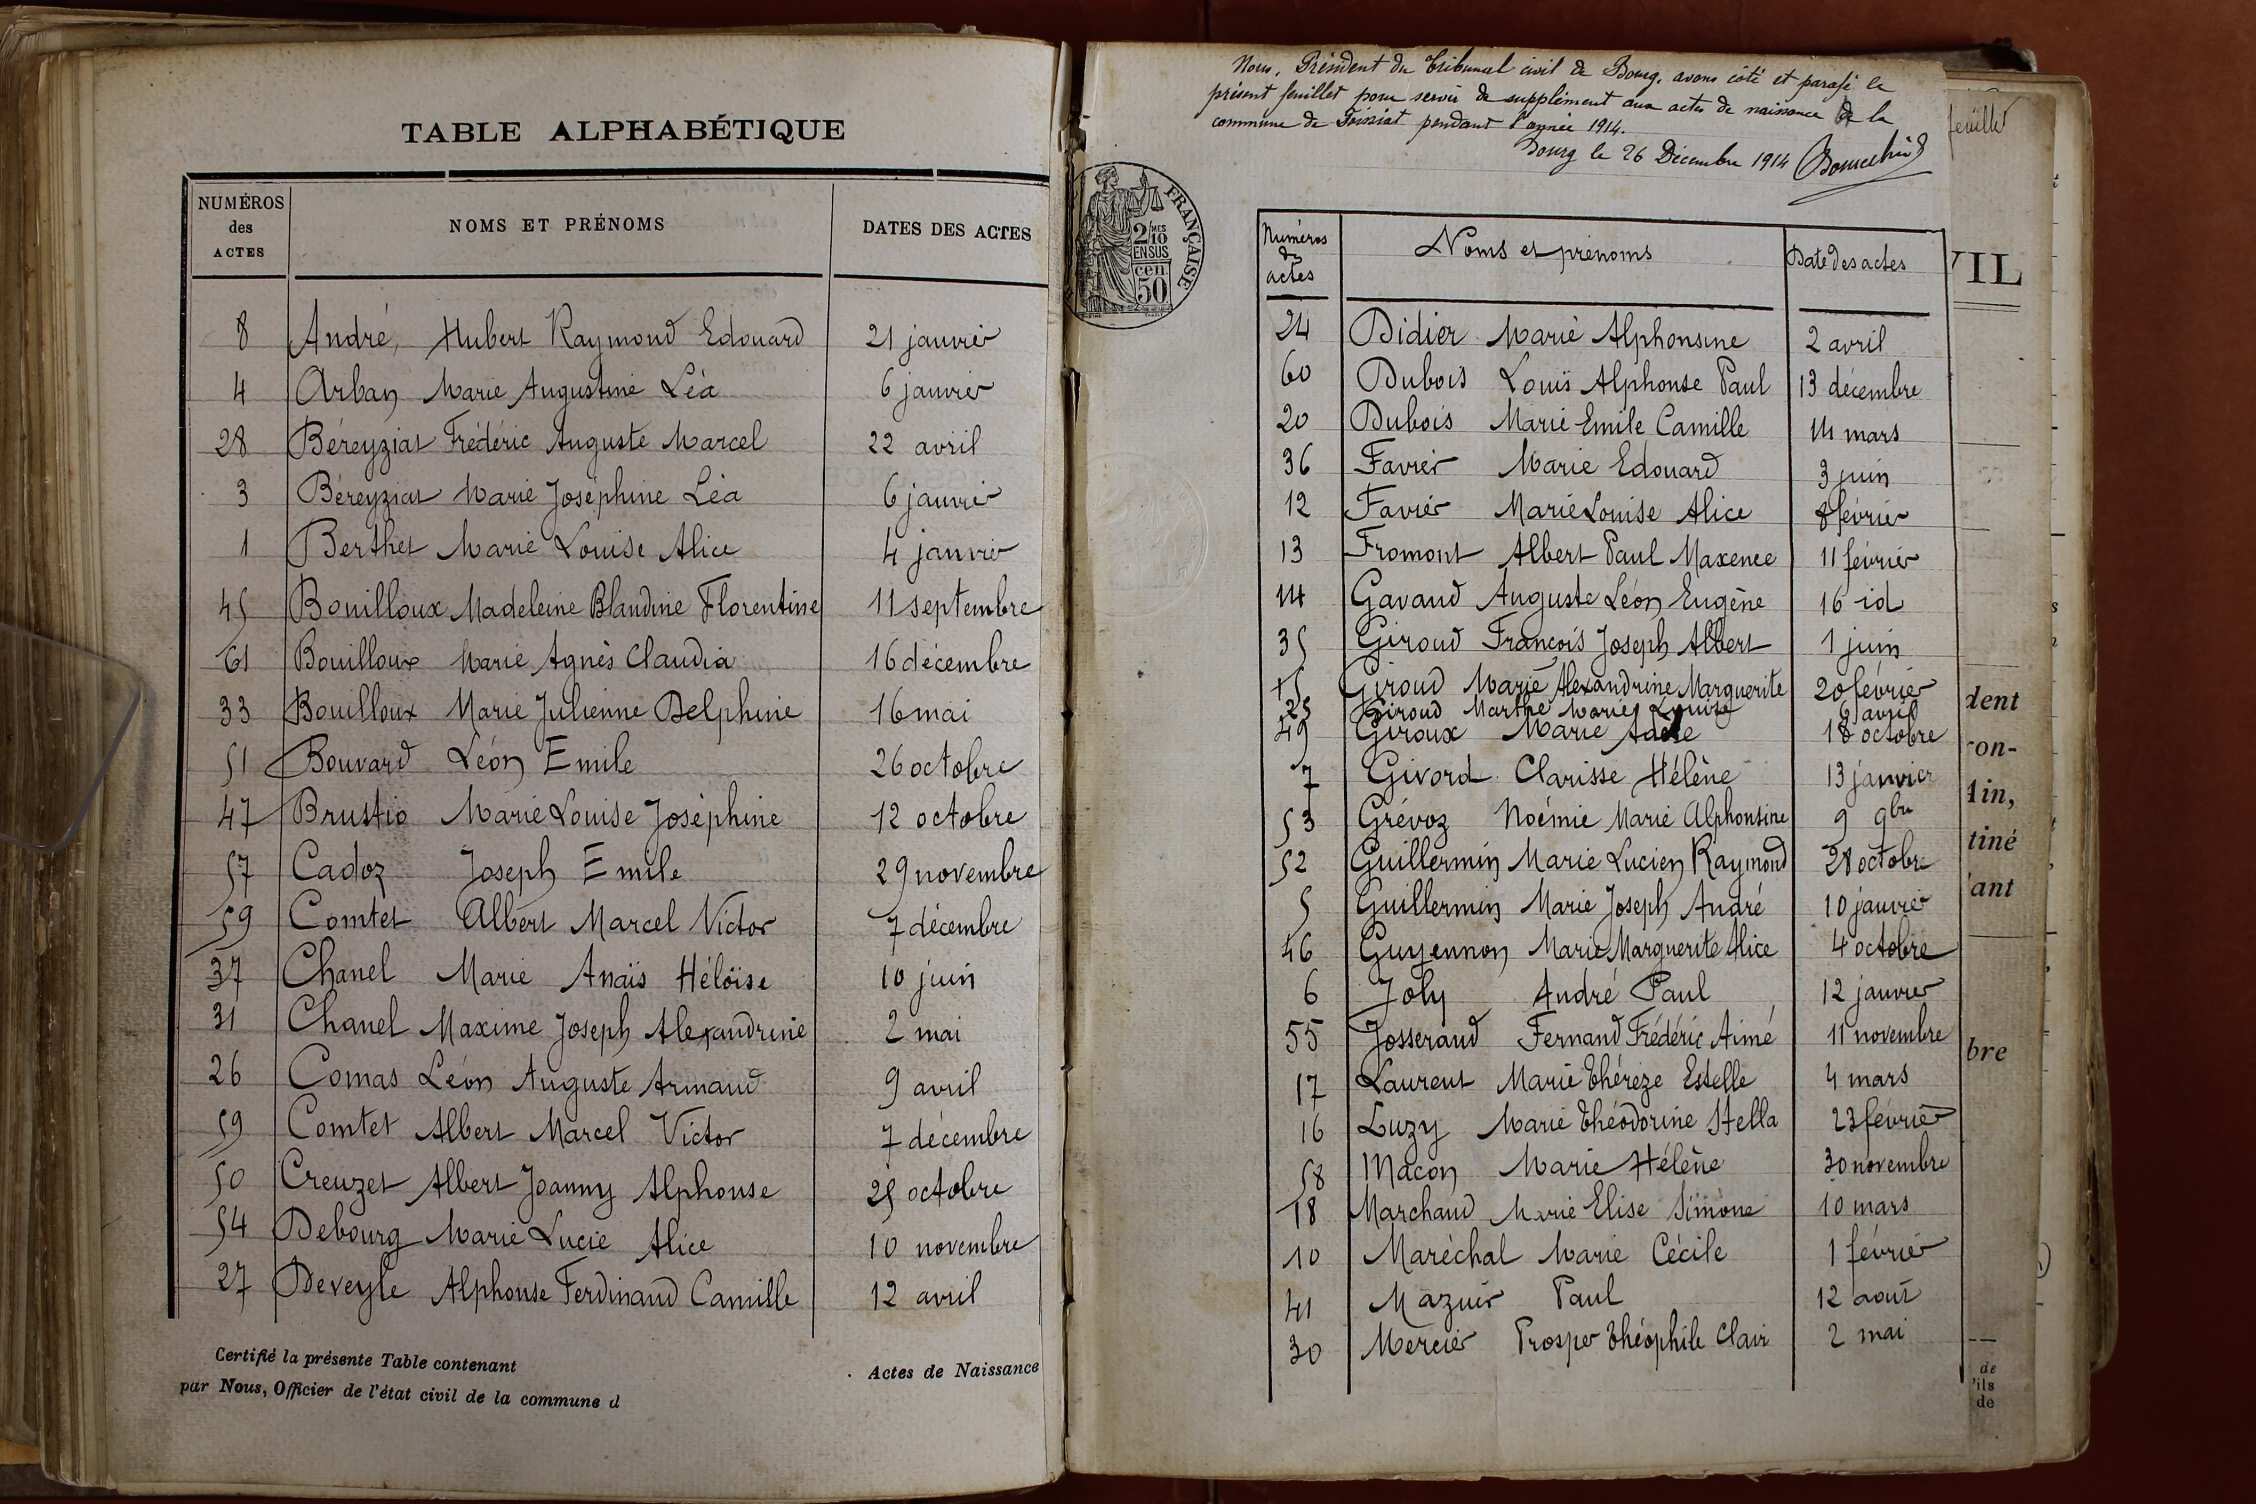 TABLE ALPHABÉTIQUE
NUMÉROS des ACTES NOMS ET PRÉNOMS DATES DES ACTES
8 André, Hubert Raymond Edouard 21 janvier
4 Arban Marie Augustine Léa 6 janvier
28 Béreyziat Frédéric Auguste Marcel 22 avril
3 Béreyziat Marie Joséphine Léa 6 janvier
1 Berthet Marie Louise Alice 4 janvier
45 Bouilloux Madeleine Blandine Florentine 11 septembre
61 Bouilloux Marie Agnès Claudia 16 décembre
33 Bouilloux Marie Julienne Delphine 16 mai
51 Bouvard Léon Emile 26 octobre
47 Brustio Marie Louise Joséphine 12 octobre
57 Cadoz Joseph Emile 29 novembre
59 Comtet Albert Marcel Victor 7 décembre
37 Chanel Marie Anaïs Héloïse 10 juin
31 Chanel Maxime Joseph Alexandrine 2 mai
26 Comas Léon Auguste Armand 9 avril
59 Comtet Albert Marcel Victor 7 décembre
50 Creuzet Albert Joanny Alphonse 25 octobre
54 Debourg Marie Lucie Alice 10 novembre
27 Deveyle Alphonse Ferdinand Camille 12 avril
Certifié la présente Table contenant Actes de Naissance
par Nous, Officier de l'état civil de la commune d
Nous, Président du Tribunal civil de Bourg, avons côté et parafé le
présent feuillet pour servir de supplément aux actes de naissance de la
commune de pendant l'année 1914.
Bourg le 26 Décembre 1914
FRANÇAISE
2/10 MES
EN SUS
cen
50
Numéros des actes Noms et prénoms Date des actes
24 Didier Marie Alphonsine 2 avril
60 Dubois Louis Alphonse Paul 13 décembre
20 Dubois Marie Emile Camille 14 mars
36 Favier Marie Edouard 3 juin
12 Favier Marie Louise Alice 8 février
13 Fromont Albert Paul Maxence 11 février
14 Gavaud Auguste Léon Eugène 16 id
35 Giroud François Joseph Albert 1 juin
15 Giroud Marie Alexandrine Marguerite 20 février
25 Giroud Marthe Marie Louise 6 avril
49 Giroux Marie Adèle 18 octobre
7 Givord Clarisse Hélène 13 janvier
53 Grévoz Noémie Marie Alphonsine 9 9bre
52 Guillermin Marie Lucien Raymond 28 octobre
5 Guillermin Marie Joseph André 10 janvier
46 Guyennon Marie Marguerite Alice 4 octobre
6 Joly André Paul 12 janvier
55 Josserand Fernand Frédéric Aimé 11 novembre
17 Laurent Marie Thérèze Estelle 4 mars
16 Luzy Marie Théodorine Stella 23 février
58 Macon Marie Hélène 30 novembre
18 Marchand Marie Elise Simone 10 mars
10 Maréchal Marie Cécile 1 février
41 Mazuir Paul 12 août
30 Mercier Prosper Théophile Clair 2 mai
feuillet
VIL
dent
on-
tiné
bre
de
'ils
de